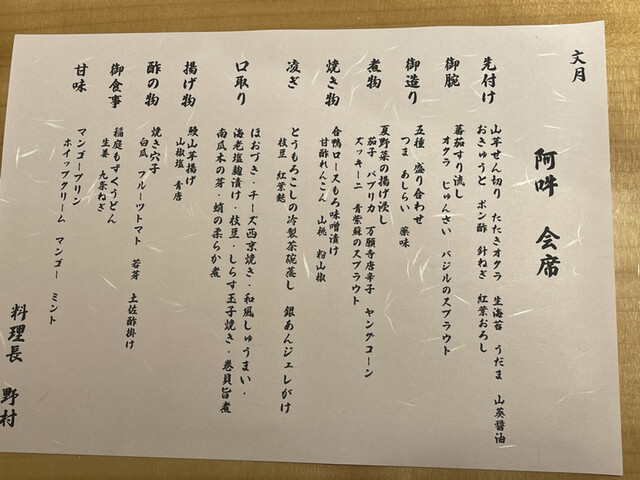 文月
阿吽 会席
先付け
山芋せん切り たたきオクラ 生海苔 うだま 山葵醤油
おきゅうと ポン酢 針ねぎ 紅葉おろし
御腕
蕃茄すり流し
オクラ じゅんさい バジルのスプラウト
御造り
五種 盛り合わせ
つま あしらい 薬味
煮物
夏野菜の揚げ浸し
茄子 パプリカ 万願寺唐辛子 ヤングコーン
ズッキーニ 青紫蘇のスプラウト
焼き物
合鴨ロースもろ味噌漬け
甘酢れんこん 山桃 粉山椒
凌ぎ
とうもろこしの冷製茶碗蒸し 銀あんジェレがけ
枝豆 紅葉麩
口取り
ほおづき・チーズ西京焼き・和風しゅうまい・
海老塩麹漬け・枝豆・しらす玉子焼き・巻貝旨煮
南瓜木の芽・蛸の柔らか煮
揚げ物
鰻山芋揚げ
山椒塩 青唐
酢の物
焼き穴子
白瓜 フルーツトマト 若芽 土佐酢掛け
御食事
稲庭もずくうどん
生姜 九条ねぎ
甘味
マンゴープリン
ホイップクリーム マンゴー ミント
料理長 野村